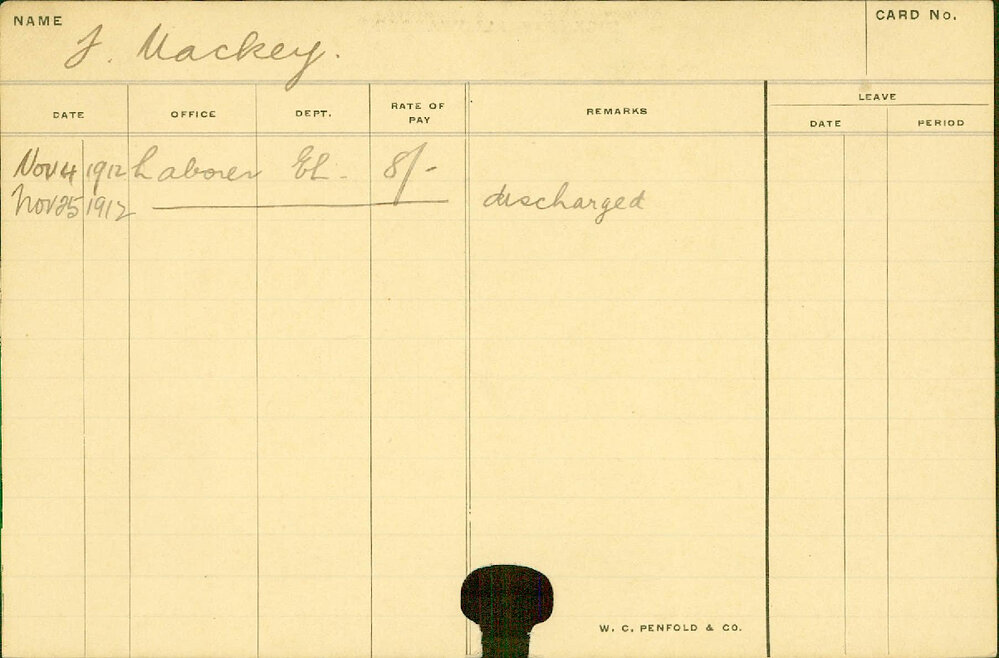 NAME CARD No.
J. Mackey.
LEAVE
DATE OFFICE DEPT. RATE OF PAY REMARKS DATE PERIOD
Nov 4 1912 Laborer EL. 8/-
Nov 25 1912 discharged
W. C. PENFOLD & CO.